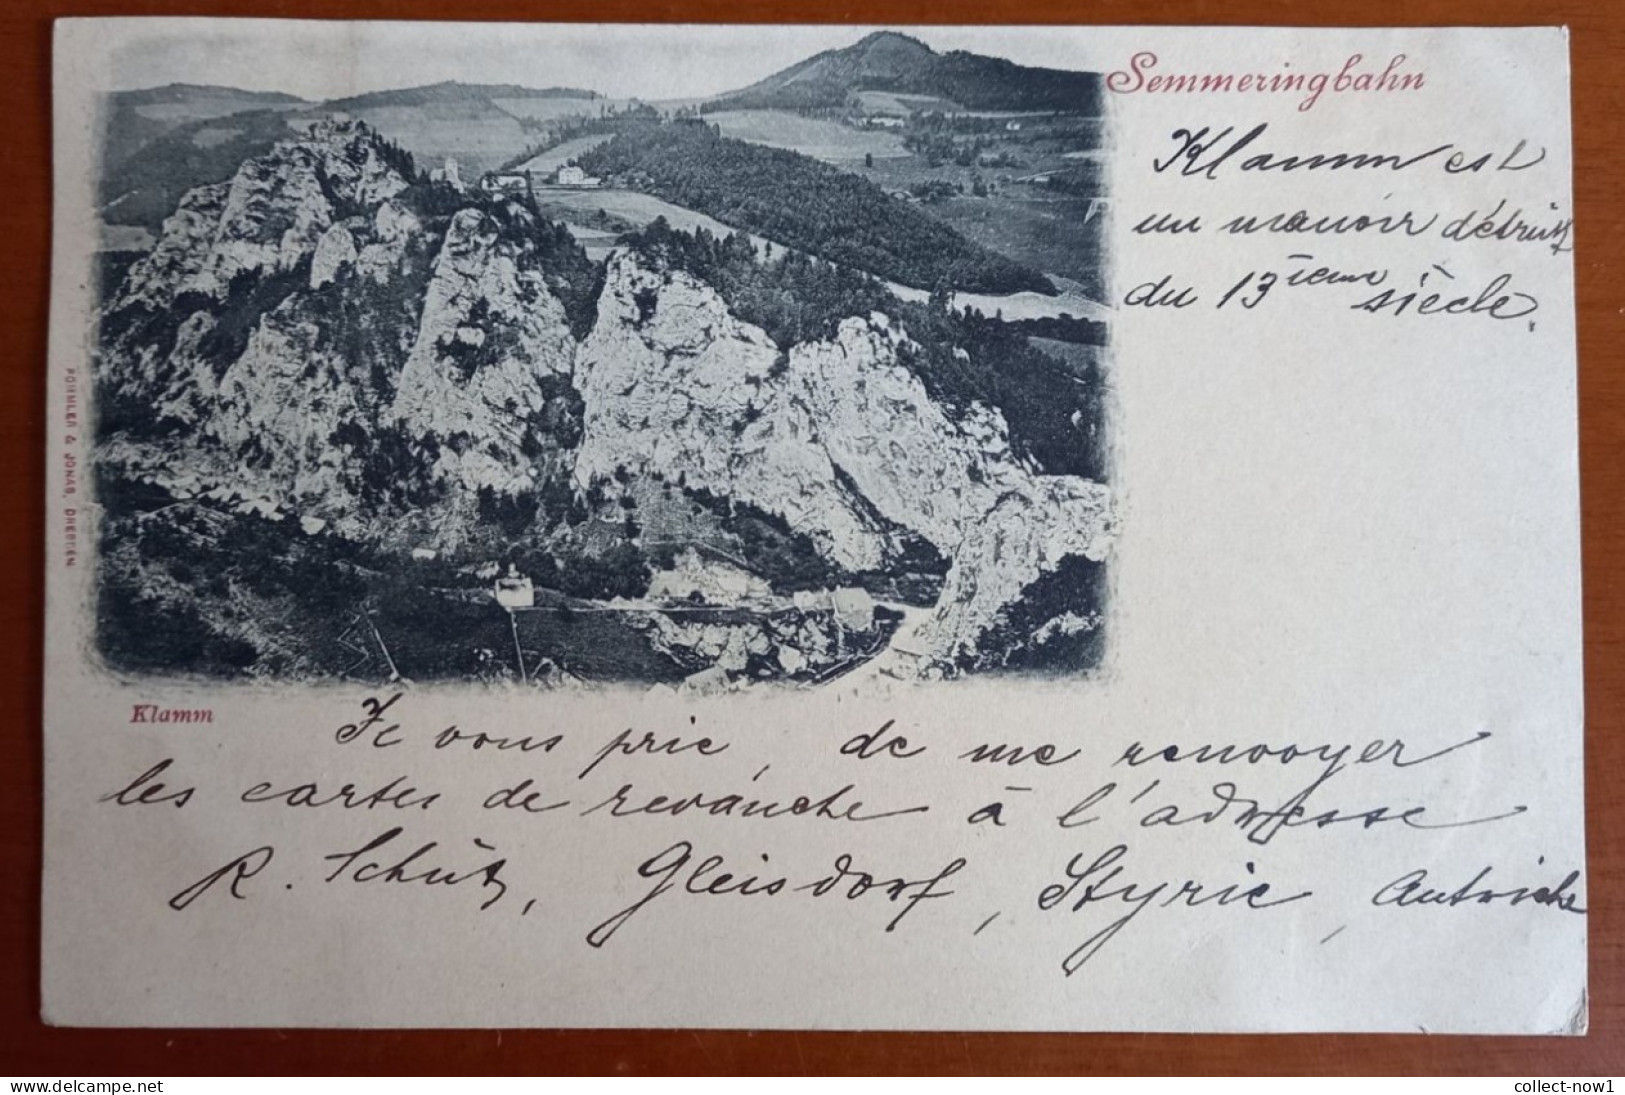 Semmeringbahn
Klamm est
un manoir détruit
du 13ieme siècle.
PÖHNLER & JONAS, DRESDEN
Klamm
Je vous prie, de me renvoyer
les cartes de revanche à l'adresse
R. Schütz, Gleisdorf, Styrie, Autriche
collect-now1